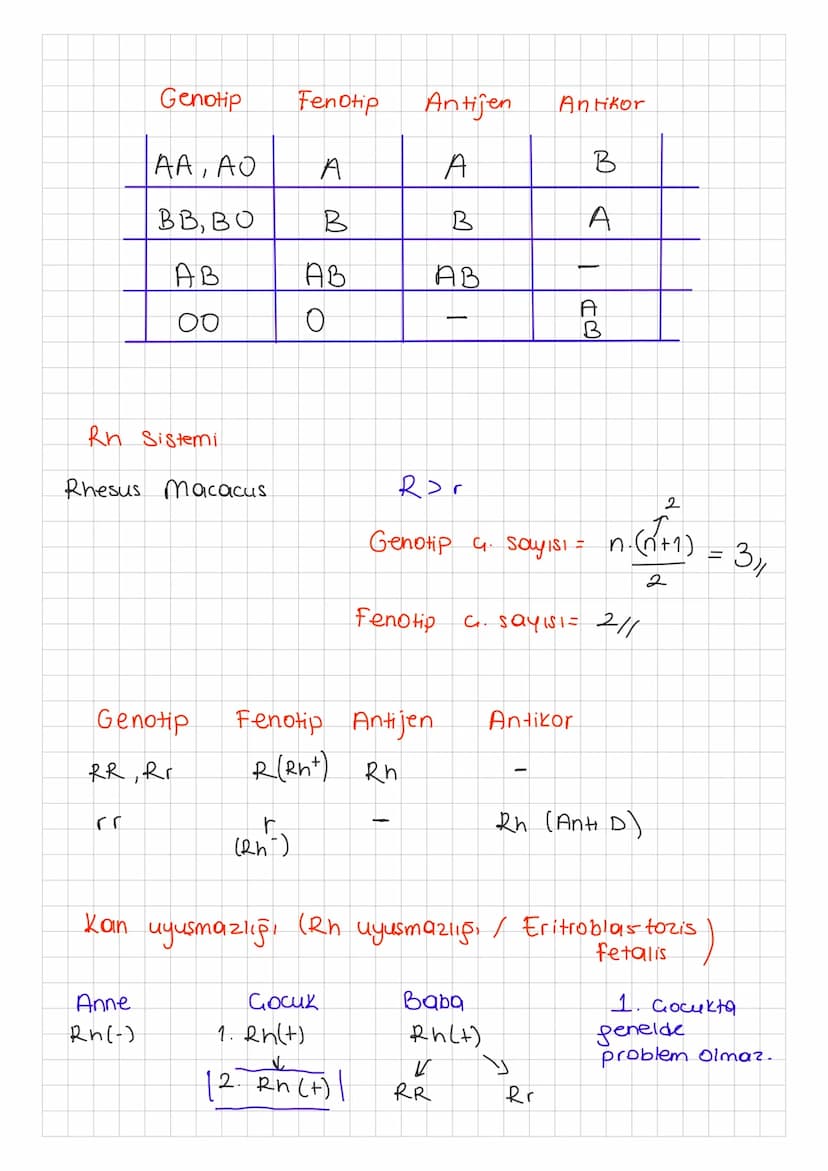 Genotip Fenotip Antijen Antikor
AA, AO A A B
BB, BO B B A
AB AB AB –
OO O – A
B
Rh Sistemi
Rhesus Macacus R > r
2
Genotip ç. sayısı = n.(n+1) = 3//
2
Fenotip ç. sayısı = 2//
Genotip Fenotip Antijen Antikor
RR, Rr R(Rh+) Rh –
rr r – Rh (Anti D)
(Rh-)
Kan uyuşmazlığı (Rh uyuşmazlığı / Eritroblastozis
fetalis)
Anne Çocuk Baba
Rh(-) 1. Rh(+) Rh(+)
2. Rh(+) RR Rr
1. Çocukta
genelde
problem olmaz.